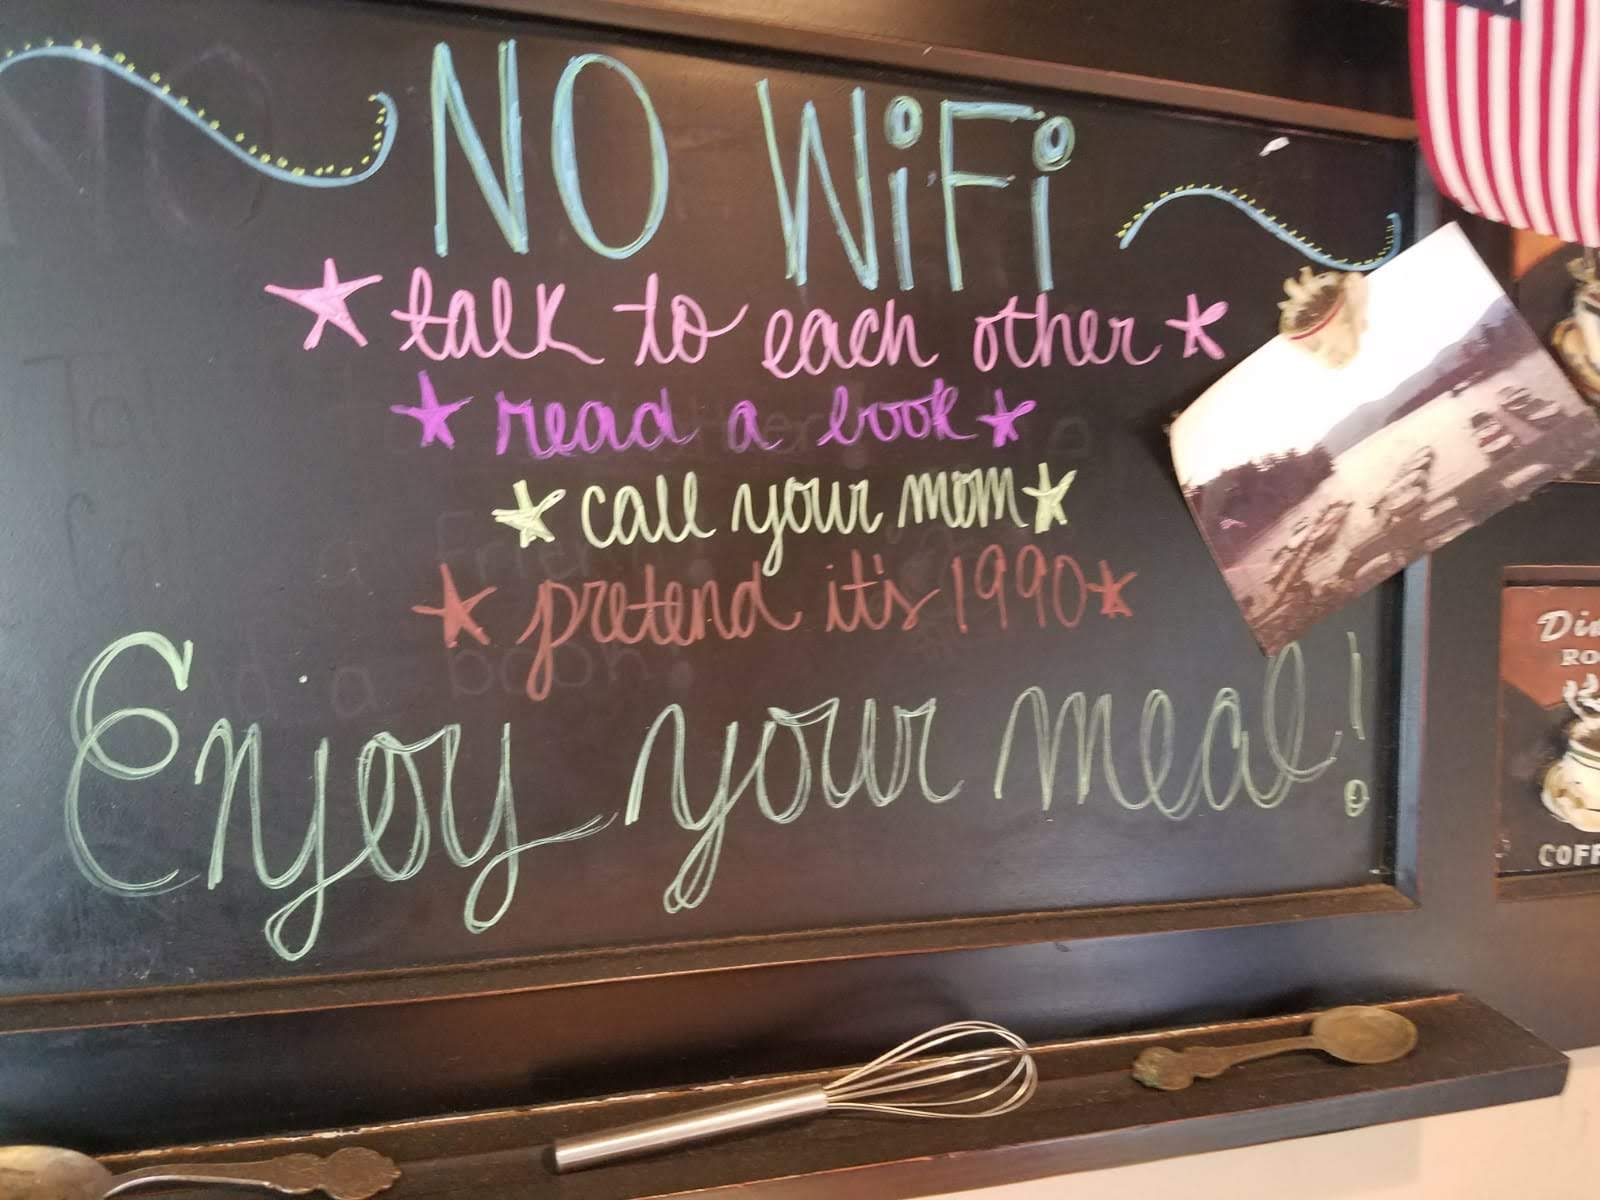 NO WiFi
talk to each other
read a book
call your mom
pretend it's 1990
Enjoy your meal!
COFF